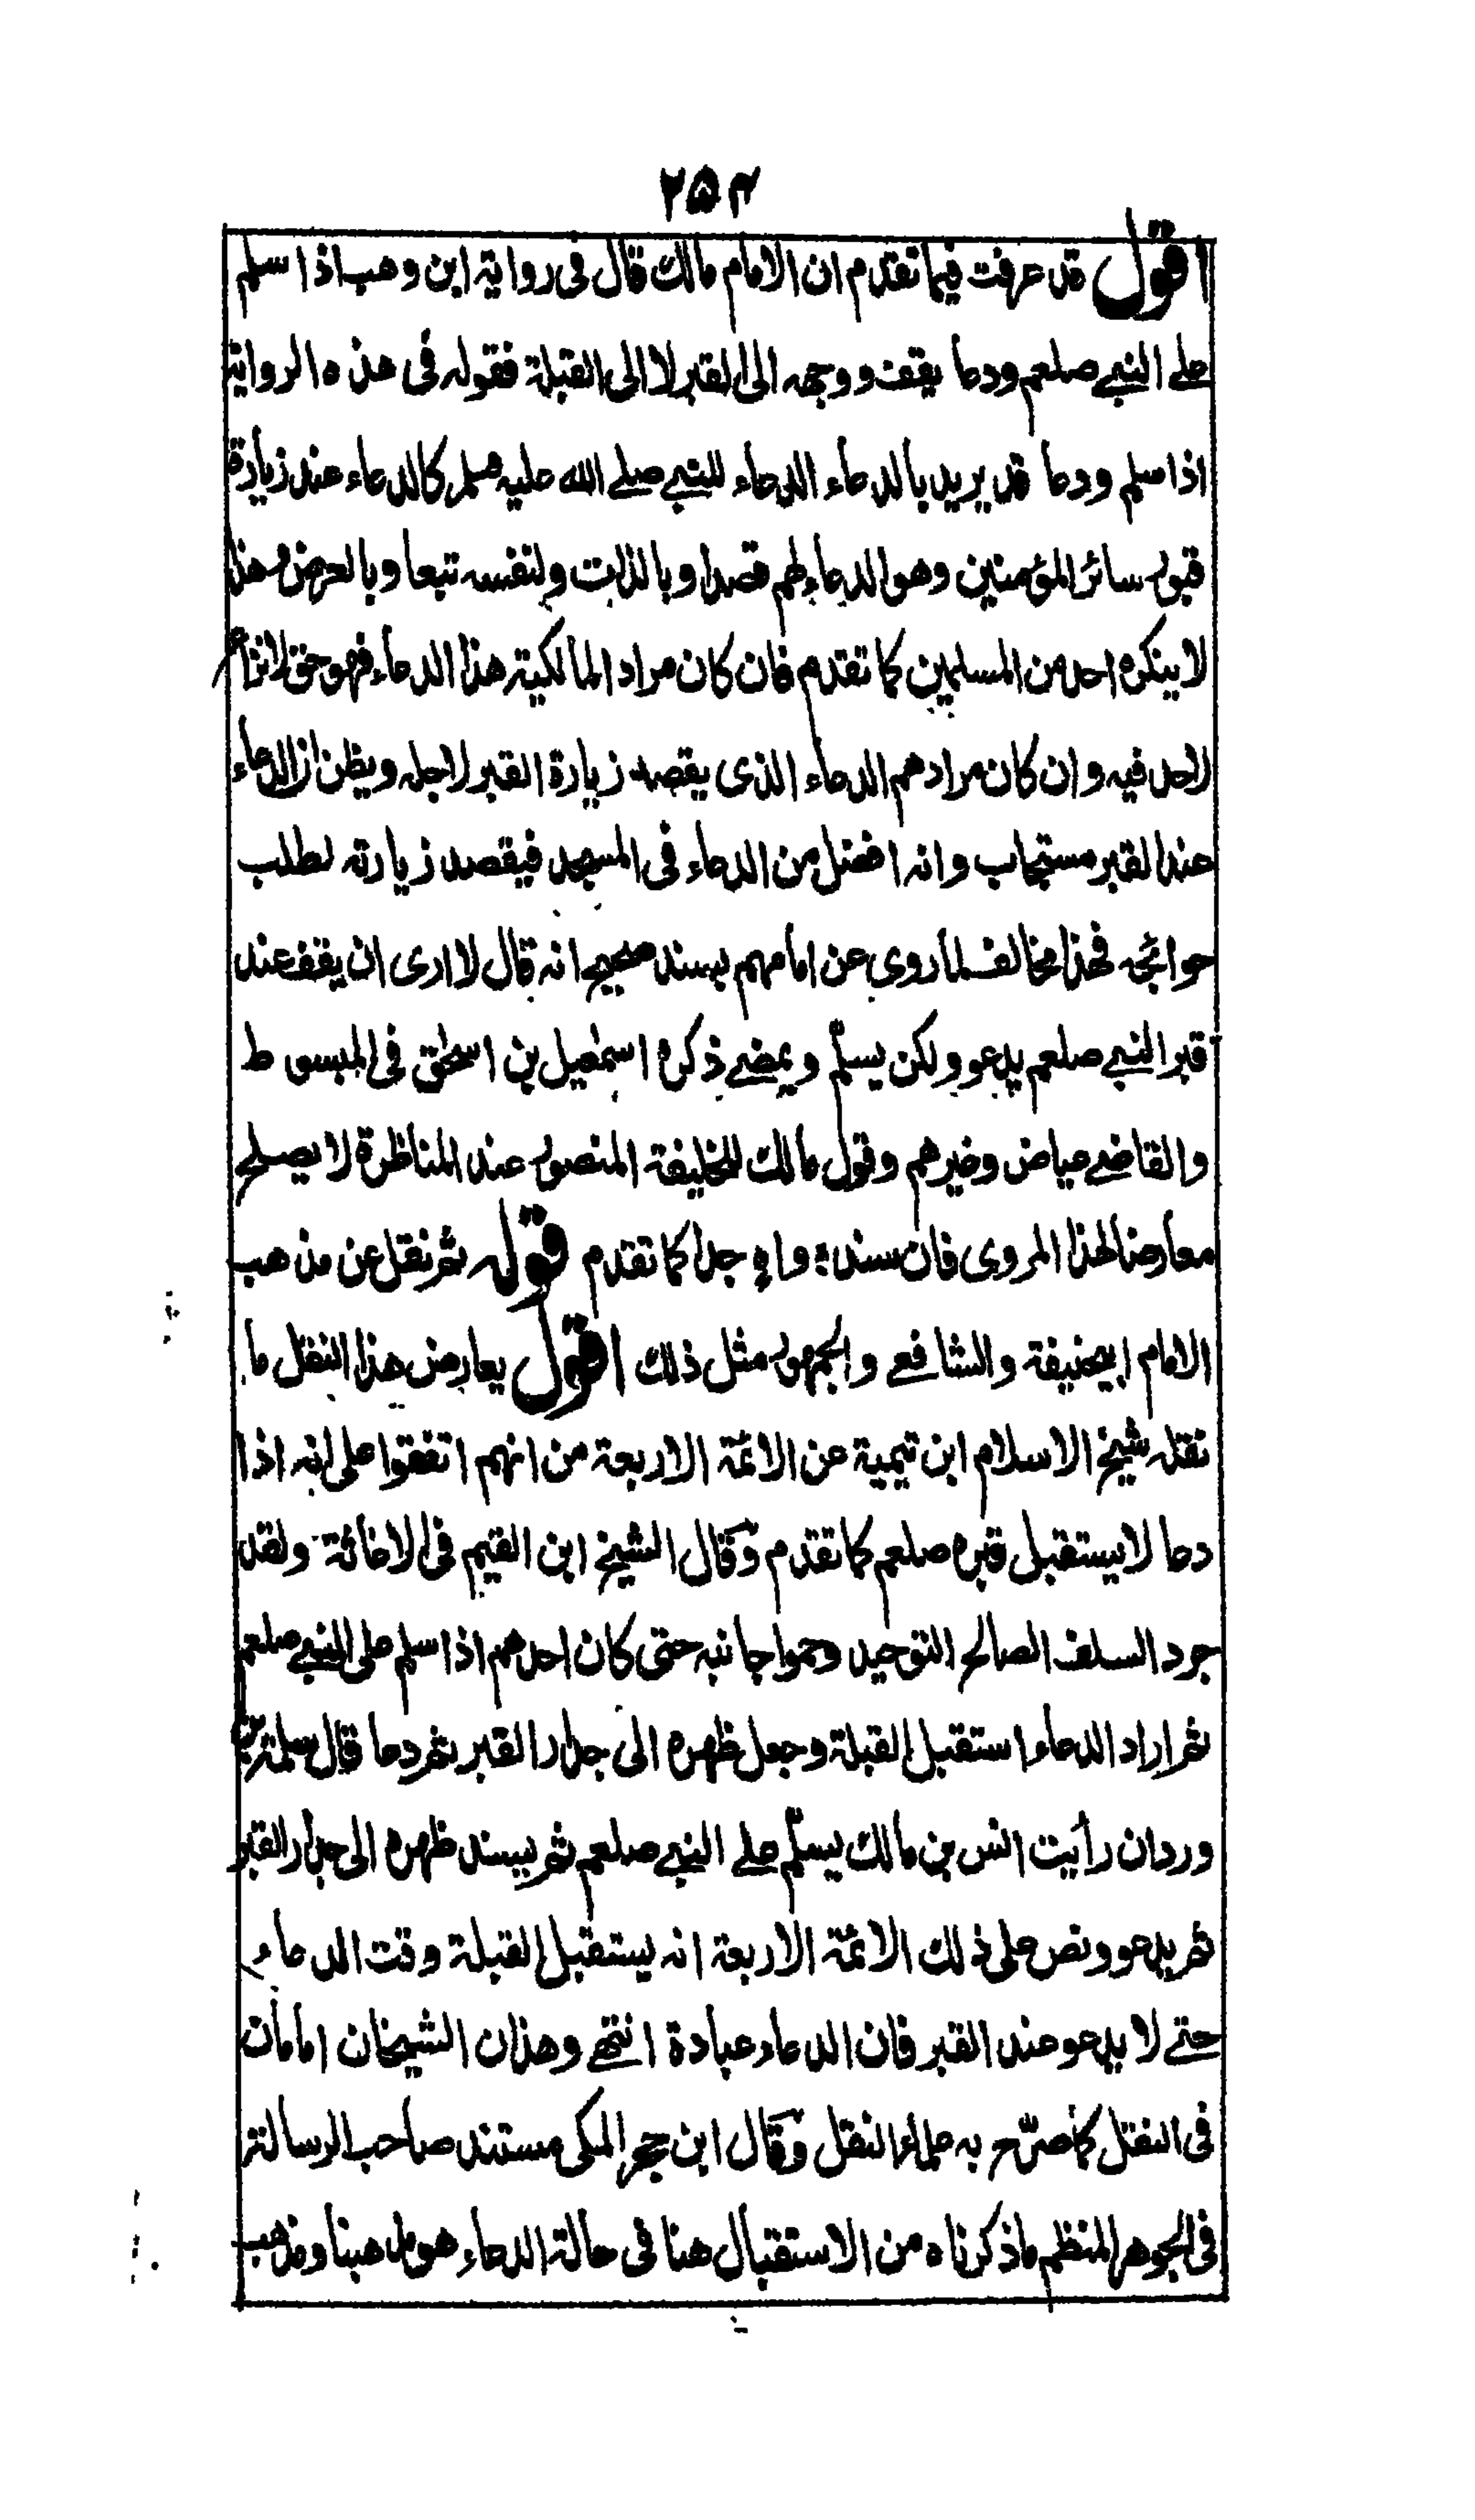 ٢٥٤
اقول قد عرفت فيما تقدم ان الامام مالك قال فى رواية ابن وهب اذا سلم
على النبي صلعم ودعا يقف ووجهه الى القبر لا الى القبلة فقوله فى هذه الرواية
اذا سلم ودعا قد يريد بالدعاء الدعاء للنبي صلے الله عليه وسلم كالدعاء عند زيارة
قبور سائر المؤمنين وهو الدعاء لهم قصدا وبالذات ولنفسه تبعا وبالعرض وهذا
لا ينكره احد من المسلمين كما تقدم فان كان مراد المالكية هذا الدعاء فهو حق لا نزاع
لاحد فيه وان كان مرادهم الدعاء الذى يقصد زيارة القبر لاجله ويظن ان الدعاء
عند القبر مستجاب وانه افضل من الدعاء فى المسجد فيقصد زيارته لطلب
حوائجه فهذا مخالف لما روى عن امامهم بسند صحيح انه قال لا ارى ان يقف عند
قبر النبي صلعم يدعو ولكن يسلّم ويمضے ذكره اسمٰعيل بن اسحٰق فى المبسوط
والقاضے عياض وغيرهم وقول مالك للخليفة المنصور عند المناظرة لا يصلح
معارضا لهذا المروى فان سنده واهٍ جدا كما تقدم قوله ثم نقل عن مذهب
الامام ابيحنيفة والشافعے والجمهور مثل ذلك اقول يعارض هذا النقل ما
نقله شيخ الاسلام ابن تيمية عن الائمة الاربعة من انهم اتفقوا على انه اذا
دعا لا يستقبل قبره صلعم كما تقدم وقال الشيخ ابن القيم فى الاغاثة ولقد
جرد السلف الصالح التوحيد وحموا جانبه حتى كان احدهم اذا سلم على النبي صلعم
ثم اراد الدعاء استقبل القبلة وجعل ظهره الى جدار القبر ثم دعا قال سلمة بن
وردان رأيت انس بن مالك يسلّم على النبي صلعم ثم يسند ظهره الى جدار القبر
ثم يدعو ونص على ذلك الائمّة الاربعة انه يستقبل القبلة وقت الدعاء
حتے لا يدعو عند القبر فان الدعاء عبادة انتهے وهذان الشيخان امامان
فى النقل كما صرّح به علماء النقل وقال ابن حجر المكى مستند صاحب الرسالة
فى الجوهر المنظم ما ذكرناه من الاستقبال هنا فى حالة الدعاء هو مذهبنا ومذهب